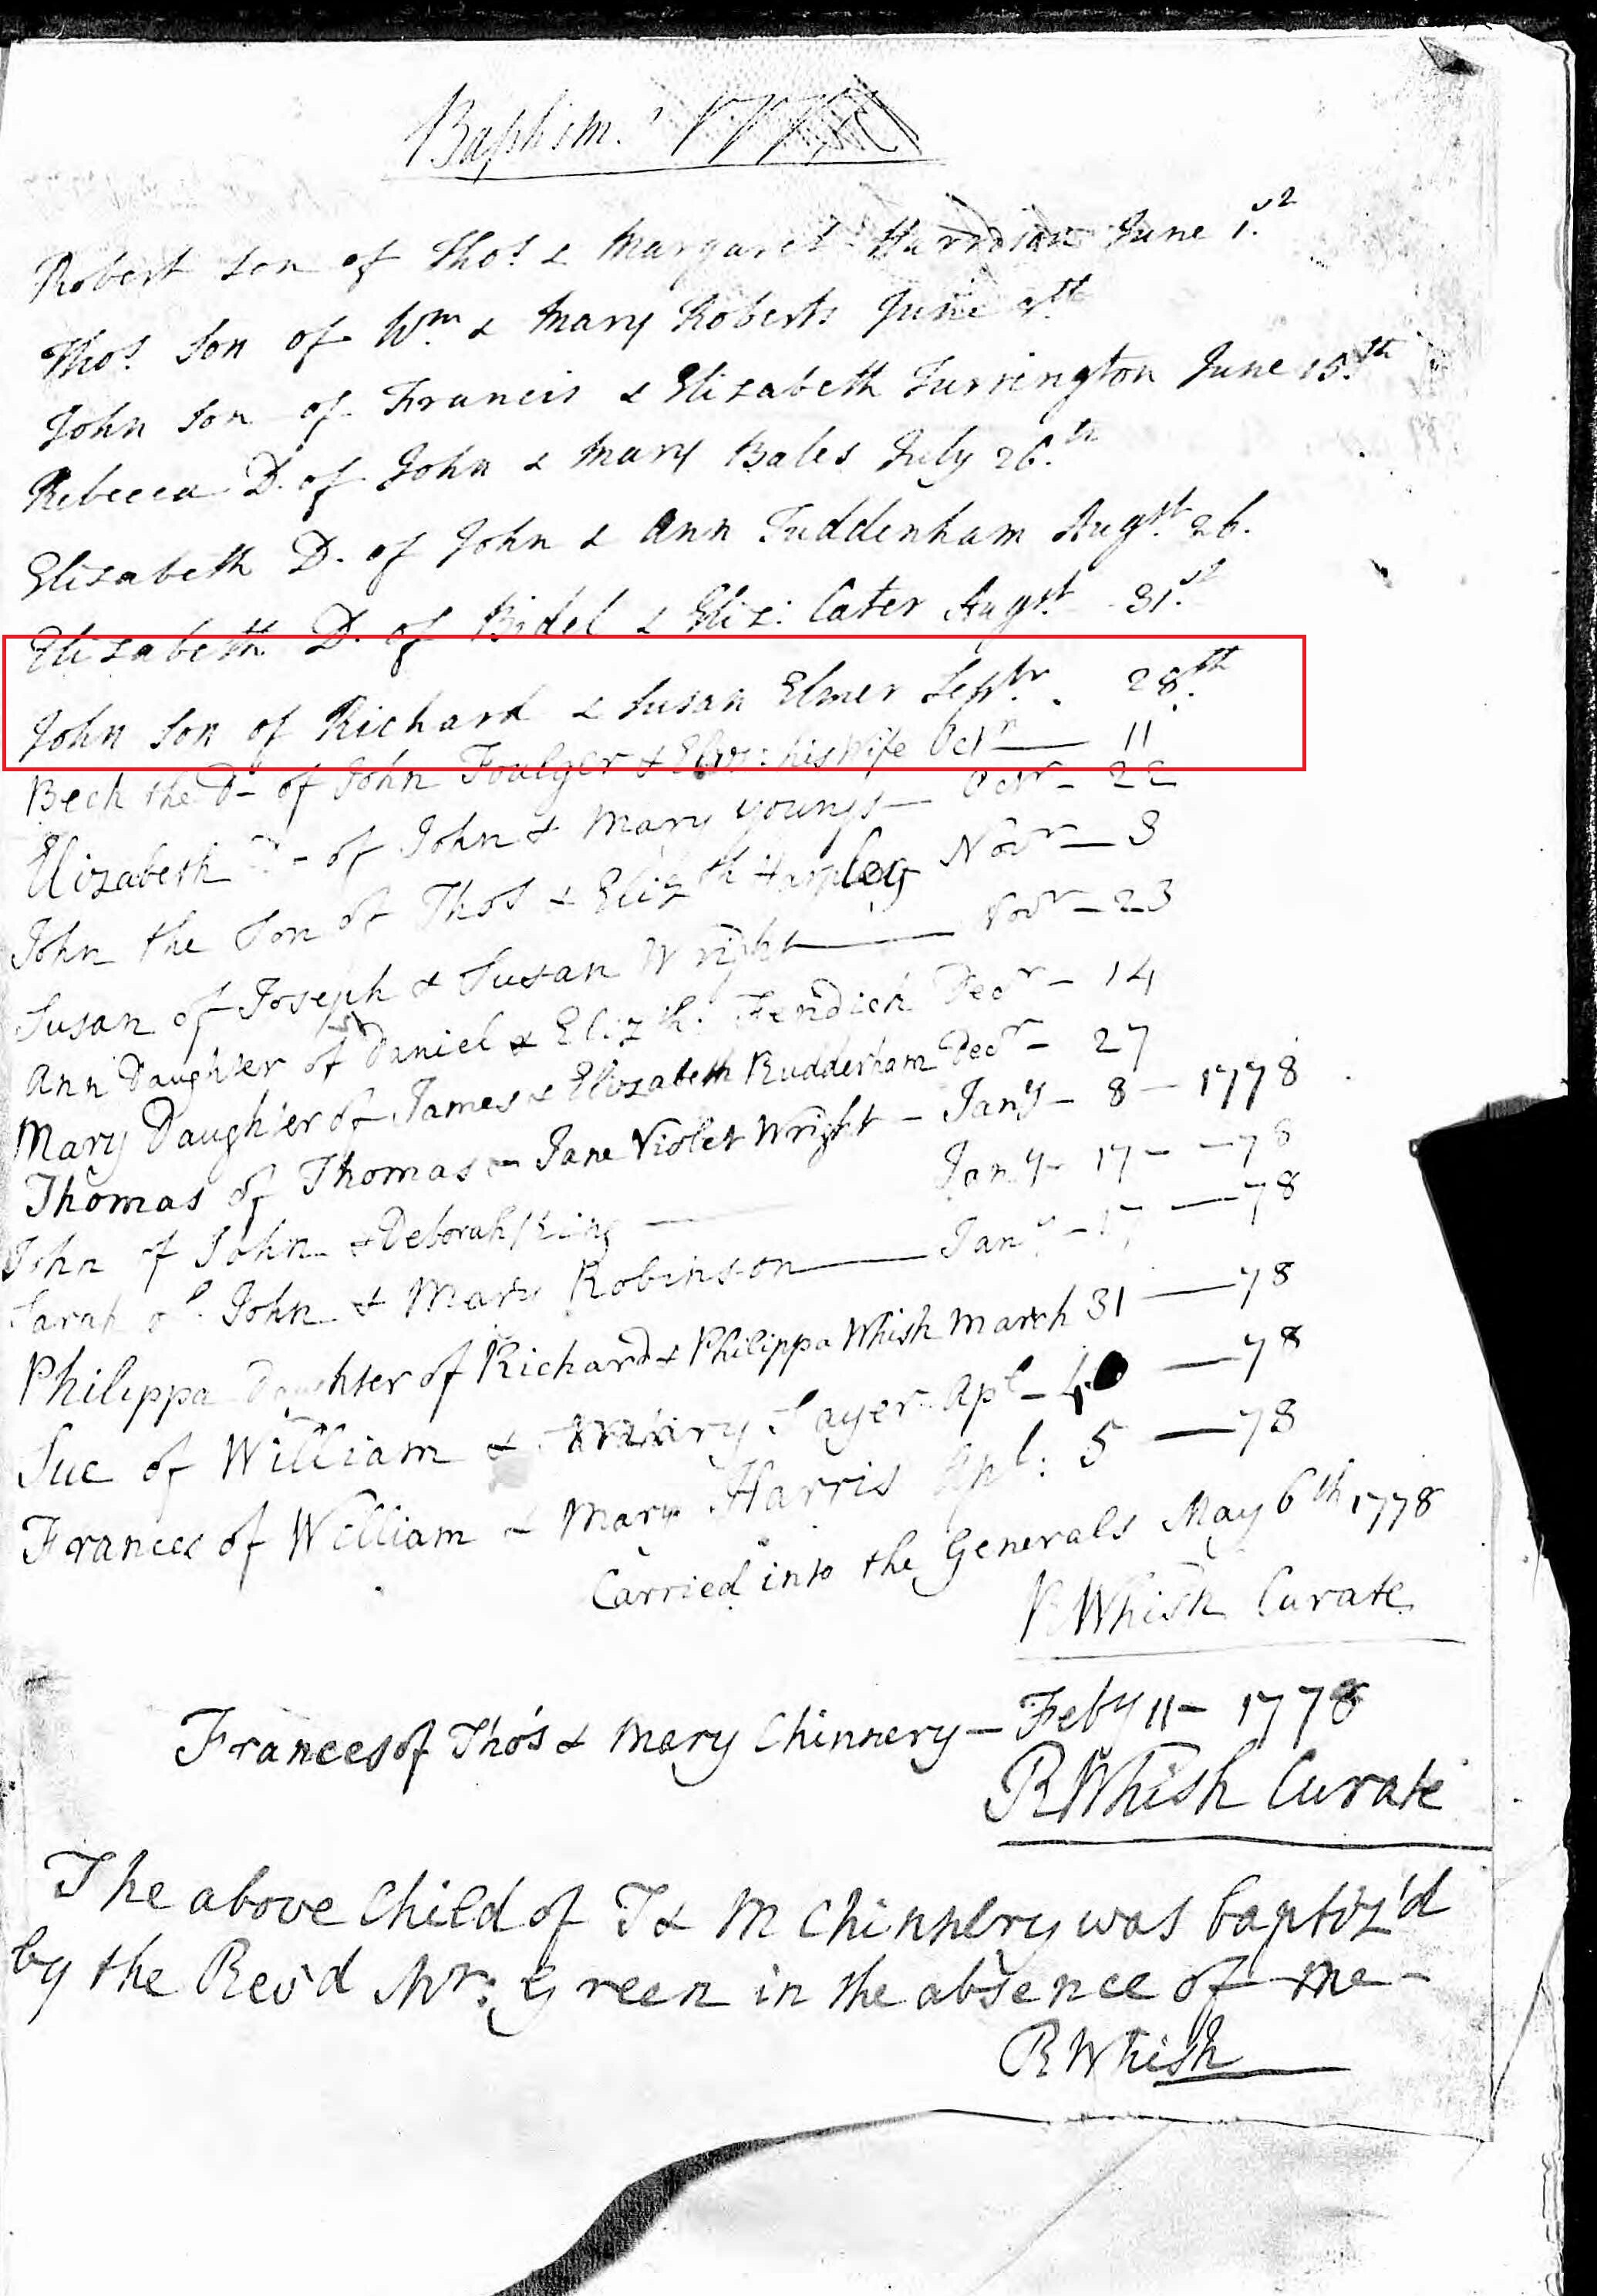 Baptism.s
Robert son of Thos. & Margaret June 1.st
Thos. son of Wm. & Mary Roberts June
John son of Francis & Elizabeth Turrington June 15.th
Rebecca D. of John & Mary Bales July 26.th
Elizabeth D. of John & Ann Tuddenham Augst. 26.
Elizabeth D. of Bidel & Eliz: Cater Augst. 31.st
John son of Richard & Susan Elmer Septbr. 28.th
Bech the D- of John Foulger & his Wife Octr — 11
Elizabeth - of John & Mary youngs — Octr - 22
John the Son of Thos & Elizth Harpley Novr — 3
Susan of Joseph & Susan Wright — Novr — 23
Ann Daughter of Daniel & Elizth: Fendich Decr - 14
Mary Daughter of James & Elizabeth Rudderham Decr - 27
Thomas of Thomas & Jane Violet Wright - Jany - 8 - 1778
John of John & Deborah King — Jany - 17 - - 78
Sarah of John & Mary Robinson — Jany - 17 — 78
Philippa Daughter of Richard & Philippa Whish March 31 — 78
Sue of William & Mary Sayer Apl - — 78
Frances of William & Mary Harris Apl: 5 — 78
Carried into the Generals May 6th 1778
R Whish Curate
Frances of Thos & Mary Chinnery — Feby 11 - 1778
R Whish Curate
The above Child of T & M Chinnery was baptiz'd
by the Rev'd Mr: Green in the absence of me -
R Whish